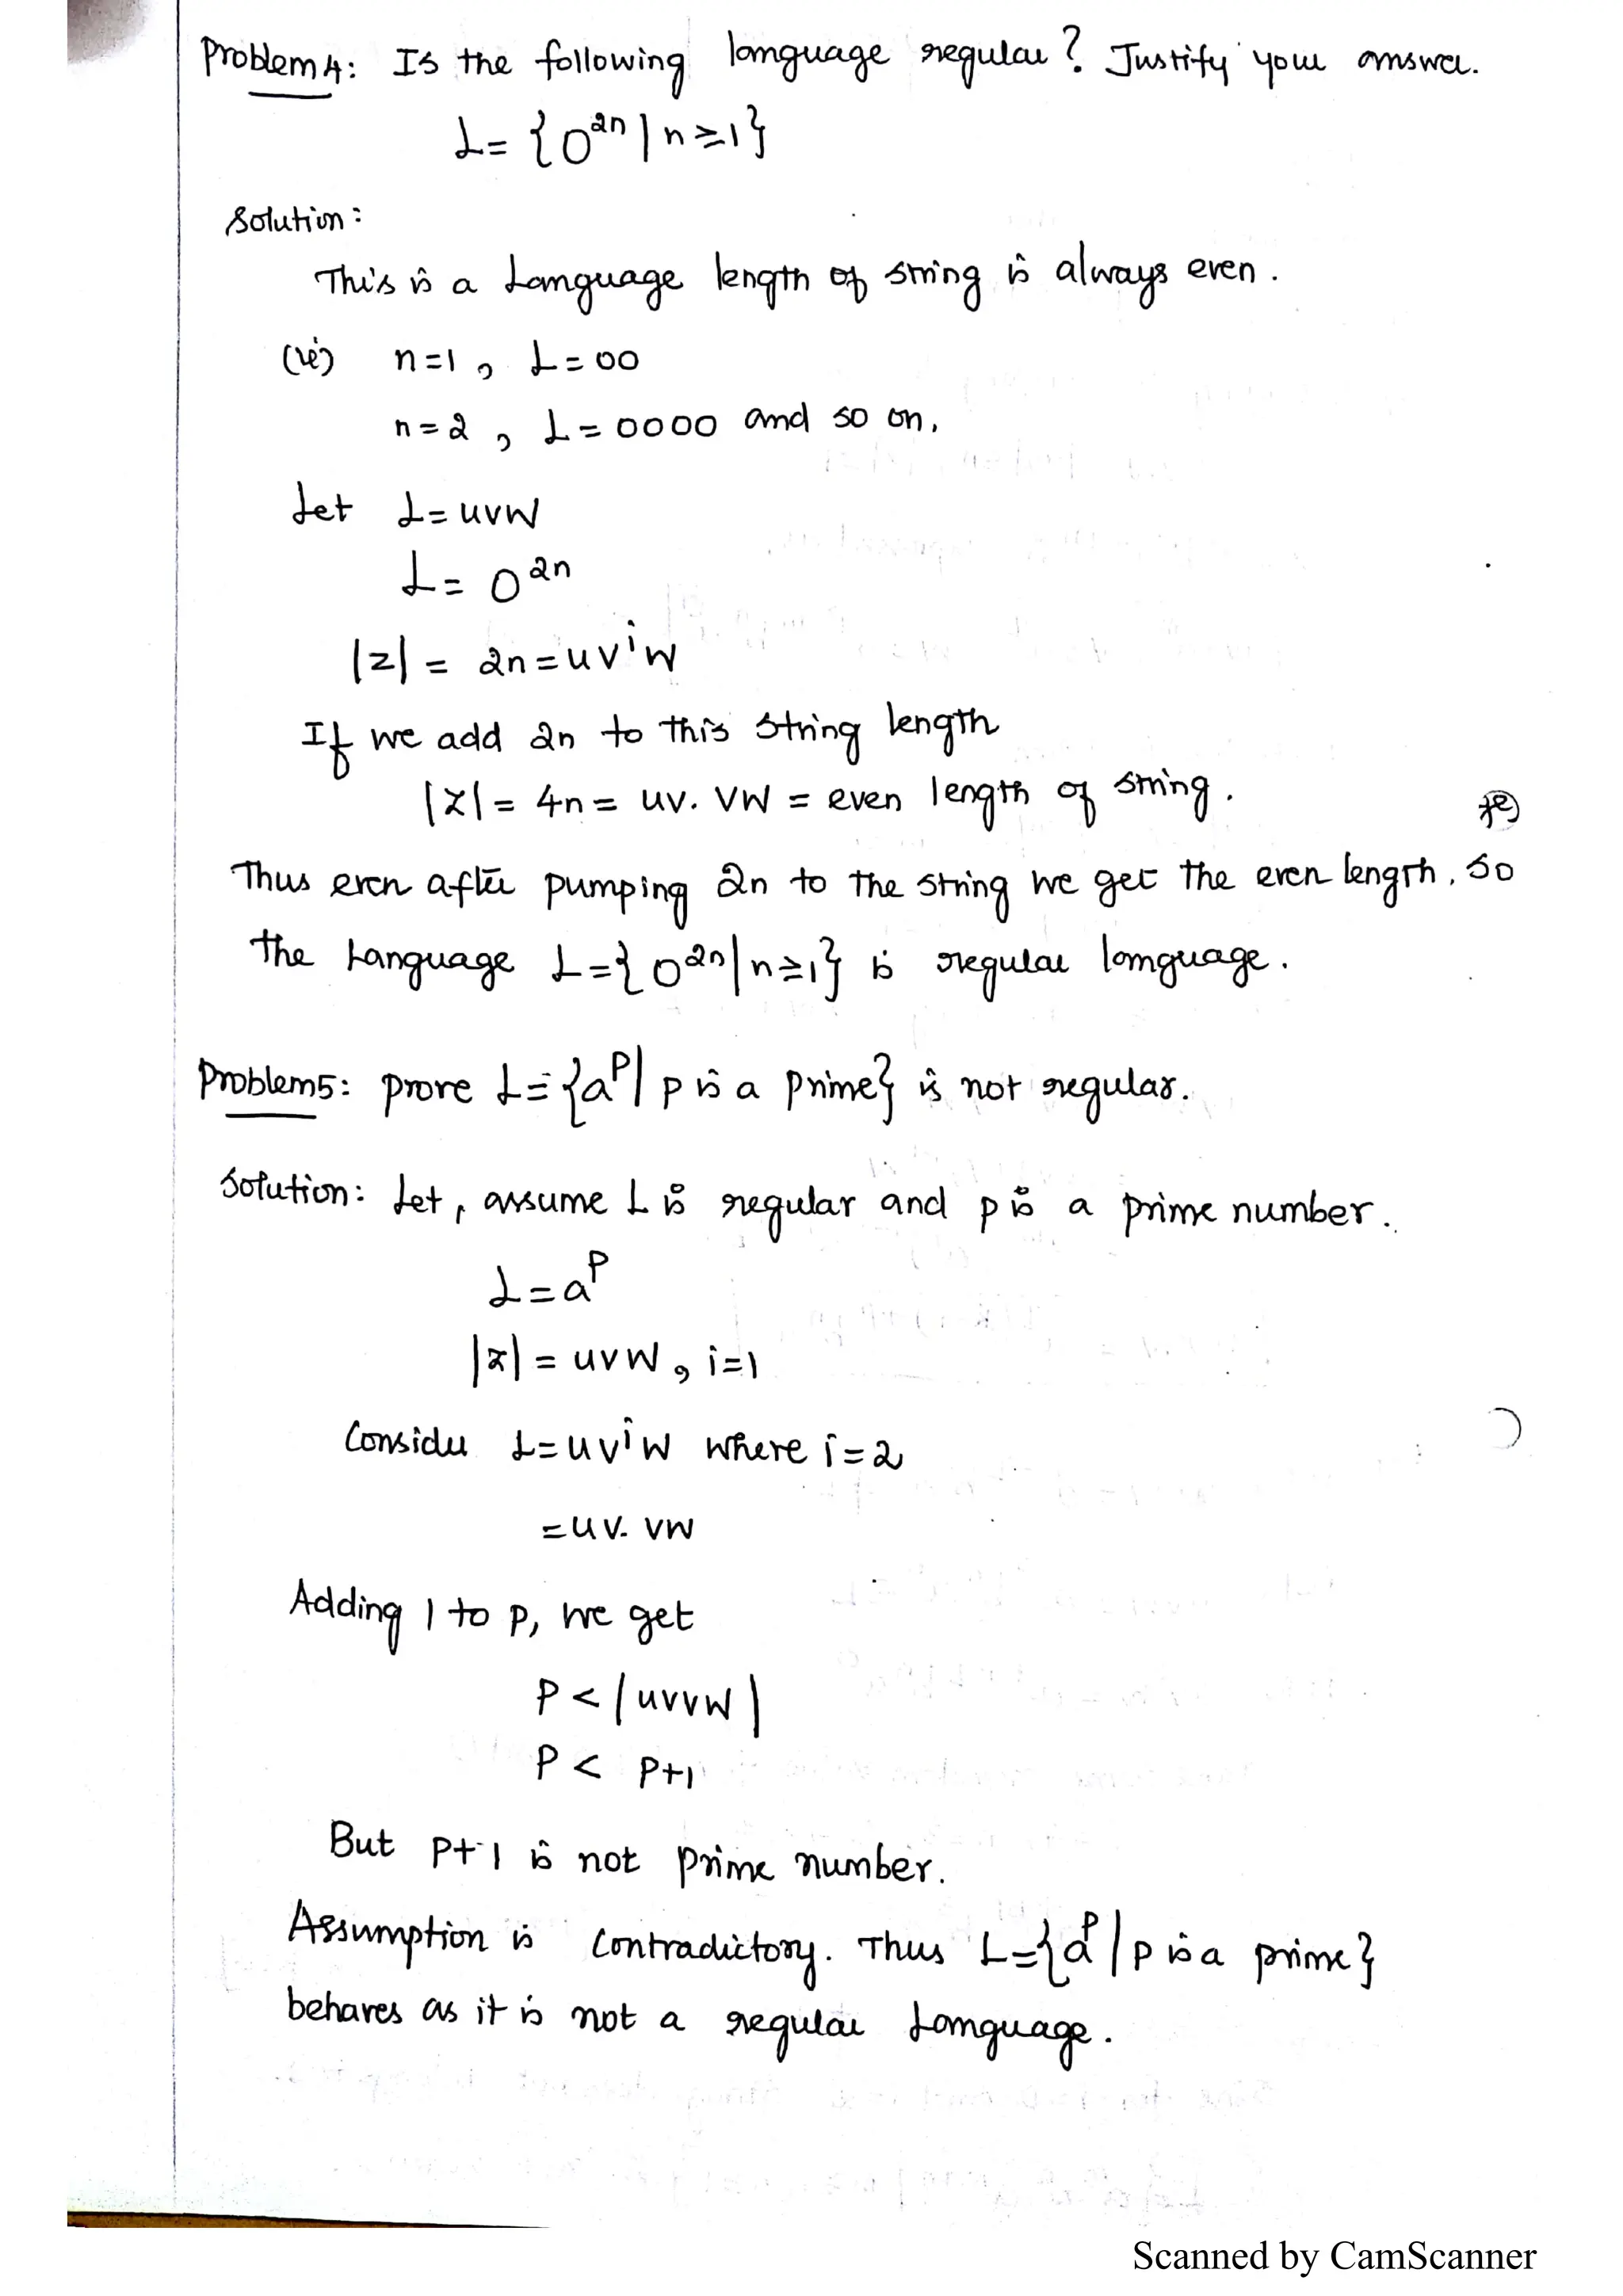 Problem 4: Is the following language regular? Justify your answer.
L = {0^2n | n ≥ 1}
Solution:
This is a Language length of string is always even.
(ie) n = 1, L = 00
n = 2, L = 0000 and so on.
Let L = uvw
L = 0^2n
|z| = 2n = uv^i w
If we add 2n to this string length
|z| = 4n = uv.vw = even length of string.
Thus even after pumping 2n to the string we get the even length. So
the Language L = {0^2n | n ≥ 1} is regular language.
Problem 5: prove L = {a^p | p is a prime} is not regular.
Solution: Let, assume L is regular and p is a prime number.
L = a^p
|z| = uvw, i = 1
Consider L = uv^i w where i = 2
= uv.vw
Adding 1 to p, we get
P < |uvvw|
P < P+1
But P+1 is not prime number.
Assumption is contradictory. Thus L = {a^p | P is a prime}
behaves as it is not a regular Language.
Scanned by CamScanner